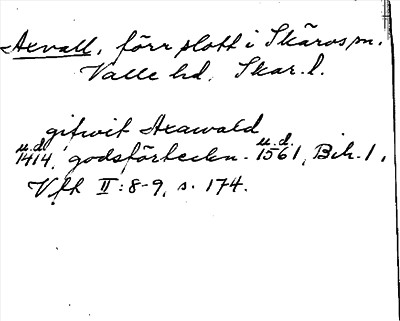 Axvall, förr slott i Skärvs sn.
Valle hd. Skar. l.
gifwit Axawald
u.d. 1414, godsförteckn. u.d. 1561, Bih. 1,
Vfh II:8-9, s. 174.